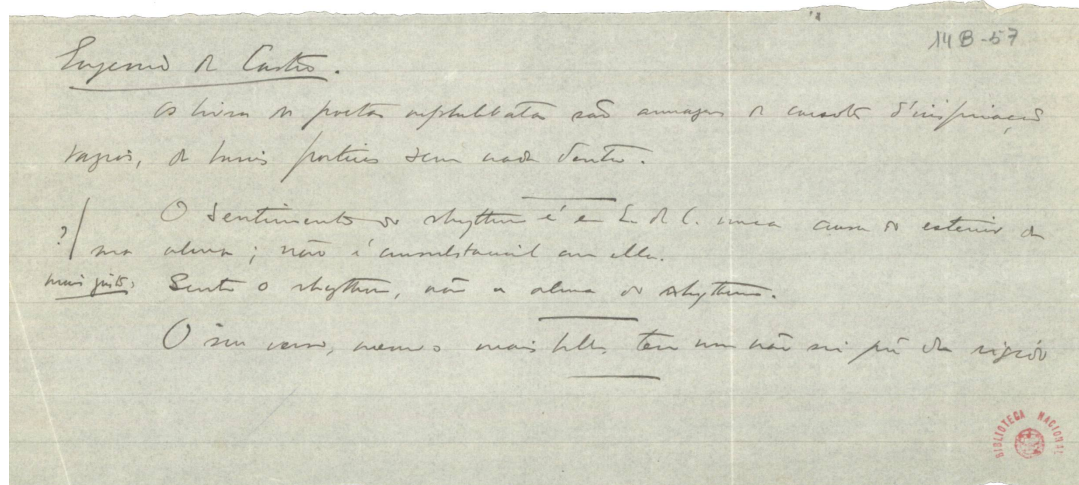 14 B-57
Eugenio de Castro.
Os livros dos poetas nephelibatas são armazens de d'inspiração
vagos, de sem nada dentro.
O sentimento do rhythmo é em E. de C. uma cousa do exterior da
?/ sua alma; não é consubstancial com ella.
mais justo: Sente o rhythmo, não a alma do rhythmo.
O seu verso, mesmo o mais bello, tem um não sei quê de rigido
BIBLIOTECA NACIONAL